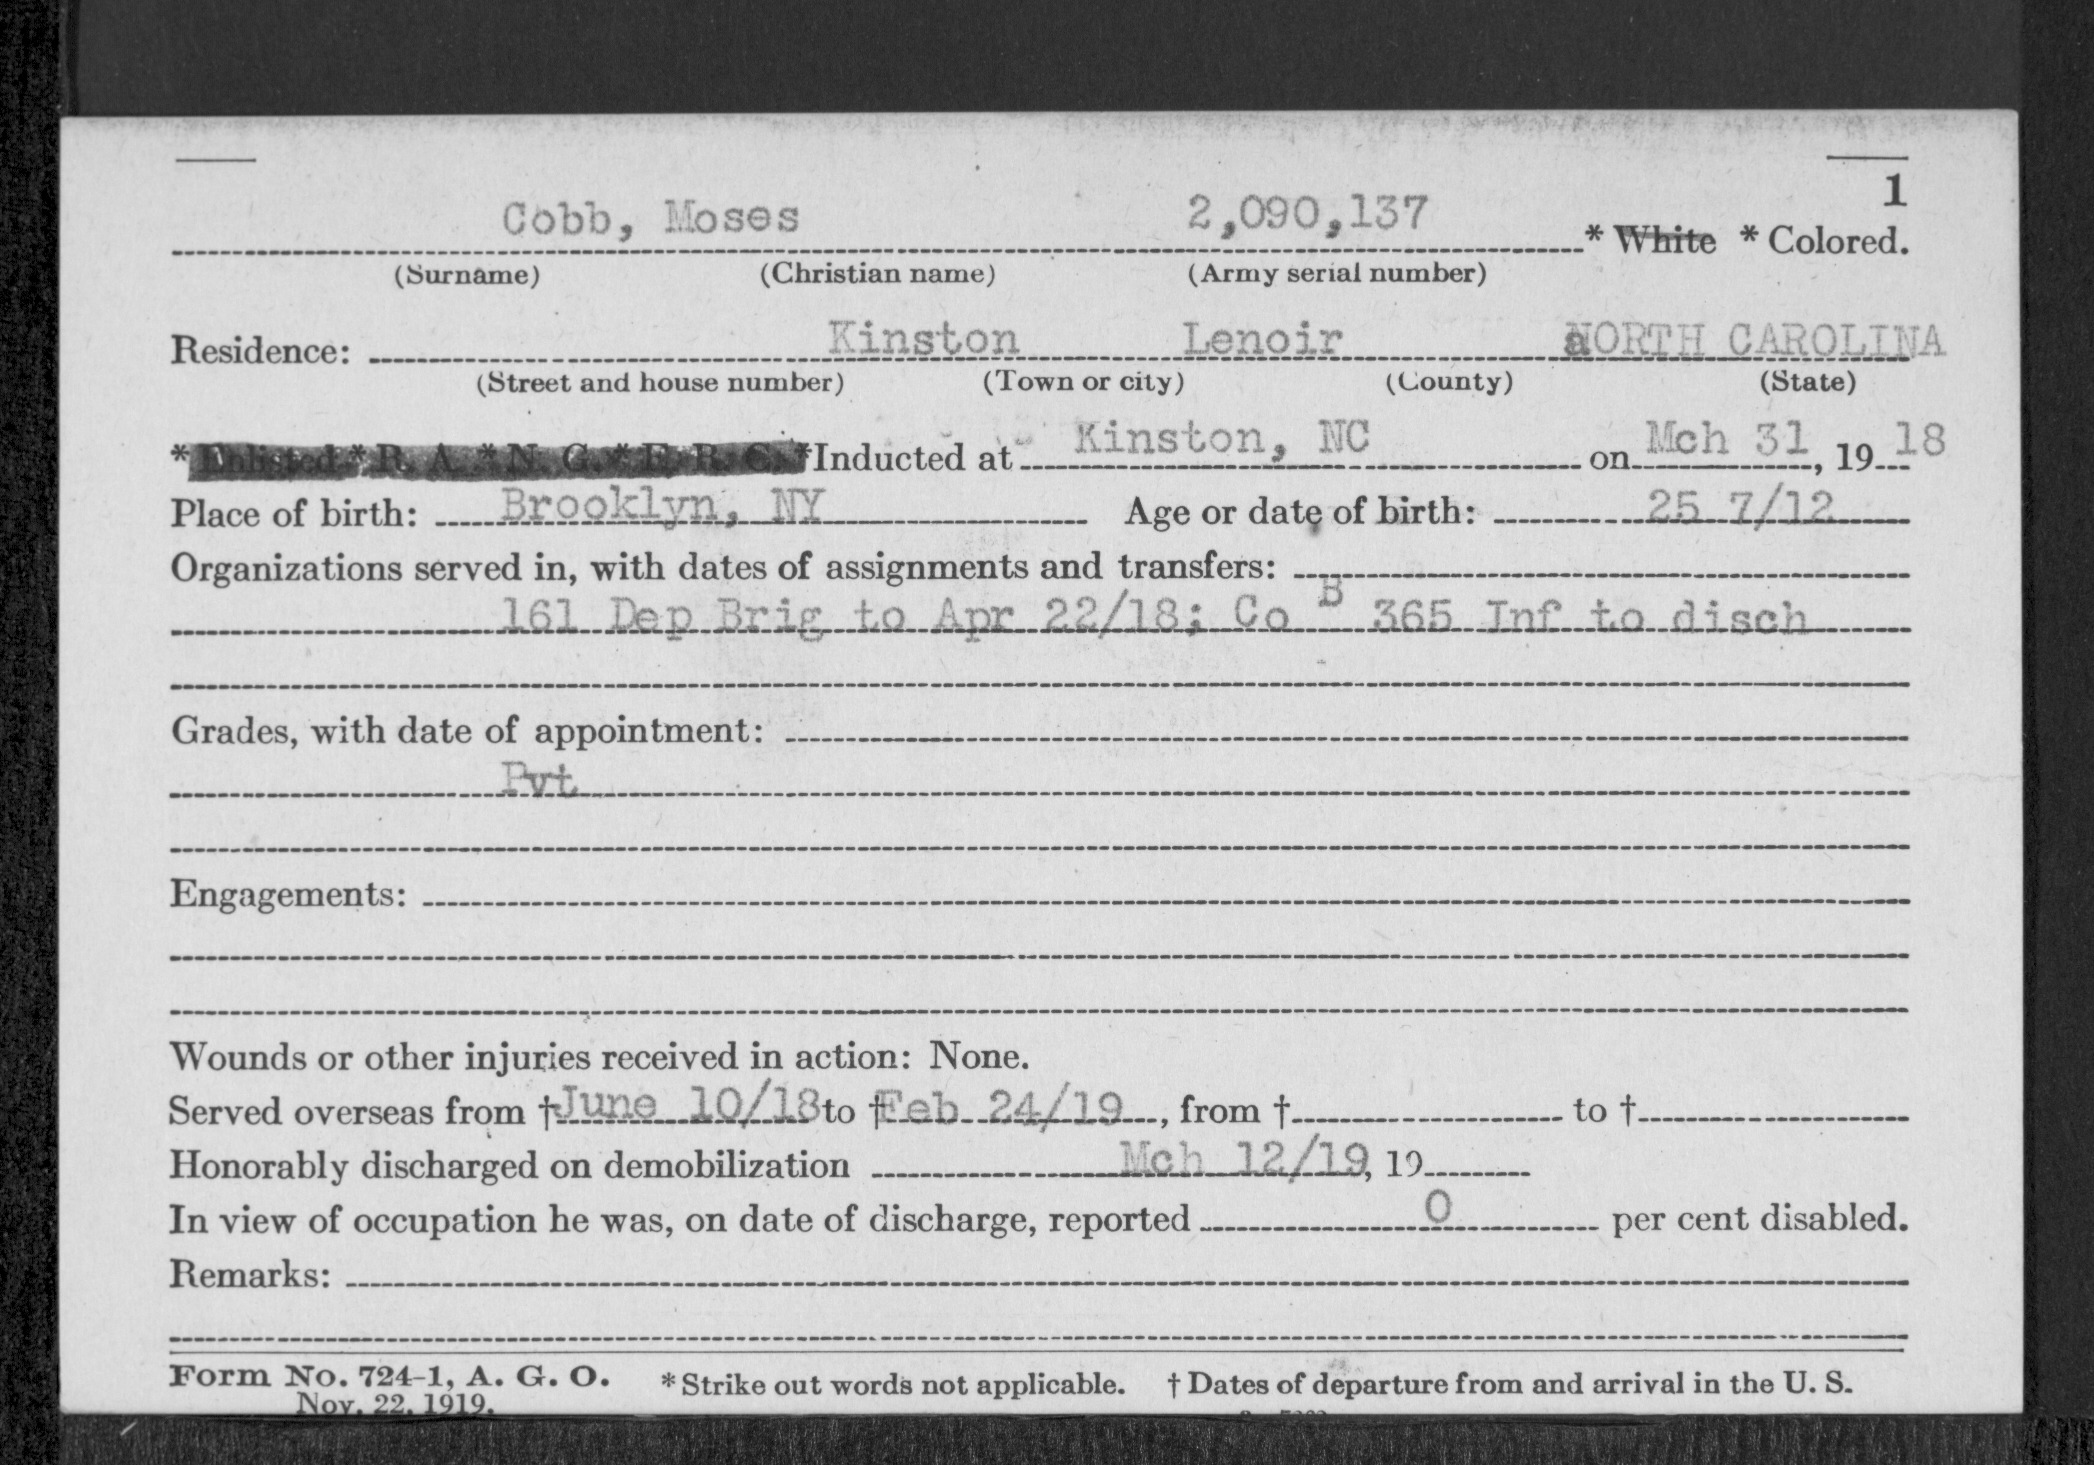 1
Cobb, Moses 2,090,137 * White * Colored.
(Surname) (Christian name) (Army serial number)
Residence: Kinston Lenoir NORTH CAROLINA
(Street and house number) (Town or city) (County) (State)
* Enlisted * R. A. * N. G. * E. R. C. *Inducted at Kinston, NC on Mch 31, 19 18
Place of birth: Brooklyn, NY Age or date of birth: 25 7/12
Organizations served in, with dates of assignments and transfers:
161 Dep Brig to Apr 22/18; Co B 365 Inf to disch
Grades, with date of appointment:
Pvt
Engagements:
Wounds or other injuries received in action: None.
Served overseas from †June 10/18 to †Feb 24/19, from † to †
Honorably discharged on demobilization Mch 12/19, 19
In view of occupation he was, on date of discharge, reported 0 per cent disabled.
Remarks:
Form No. 724-1, A. G. O. * Strike out words not applicable. † Dates of departure from and arrival in the U. S.
Nov. 22, 1919.